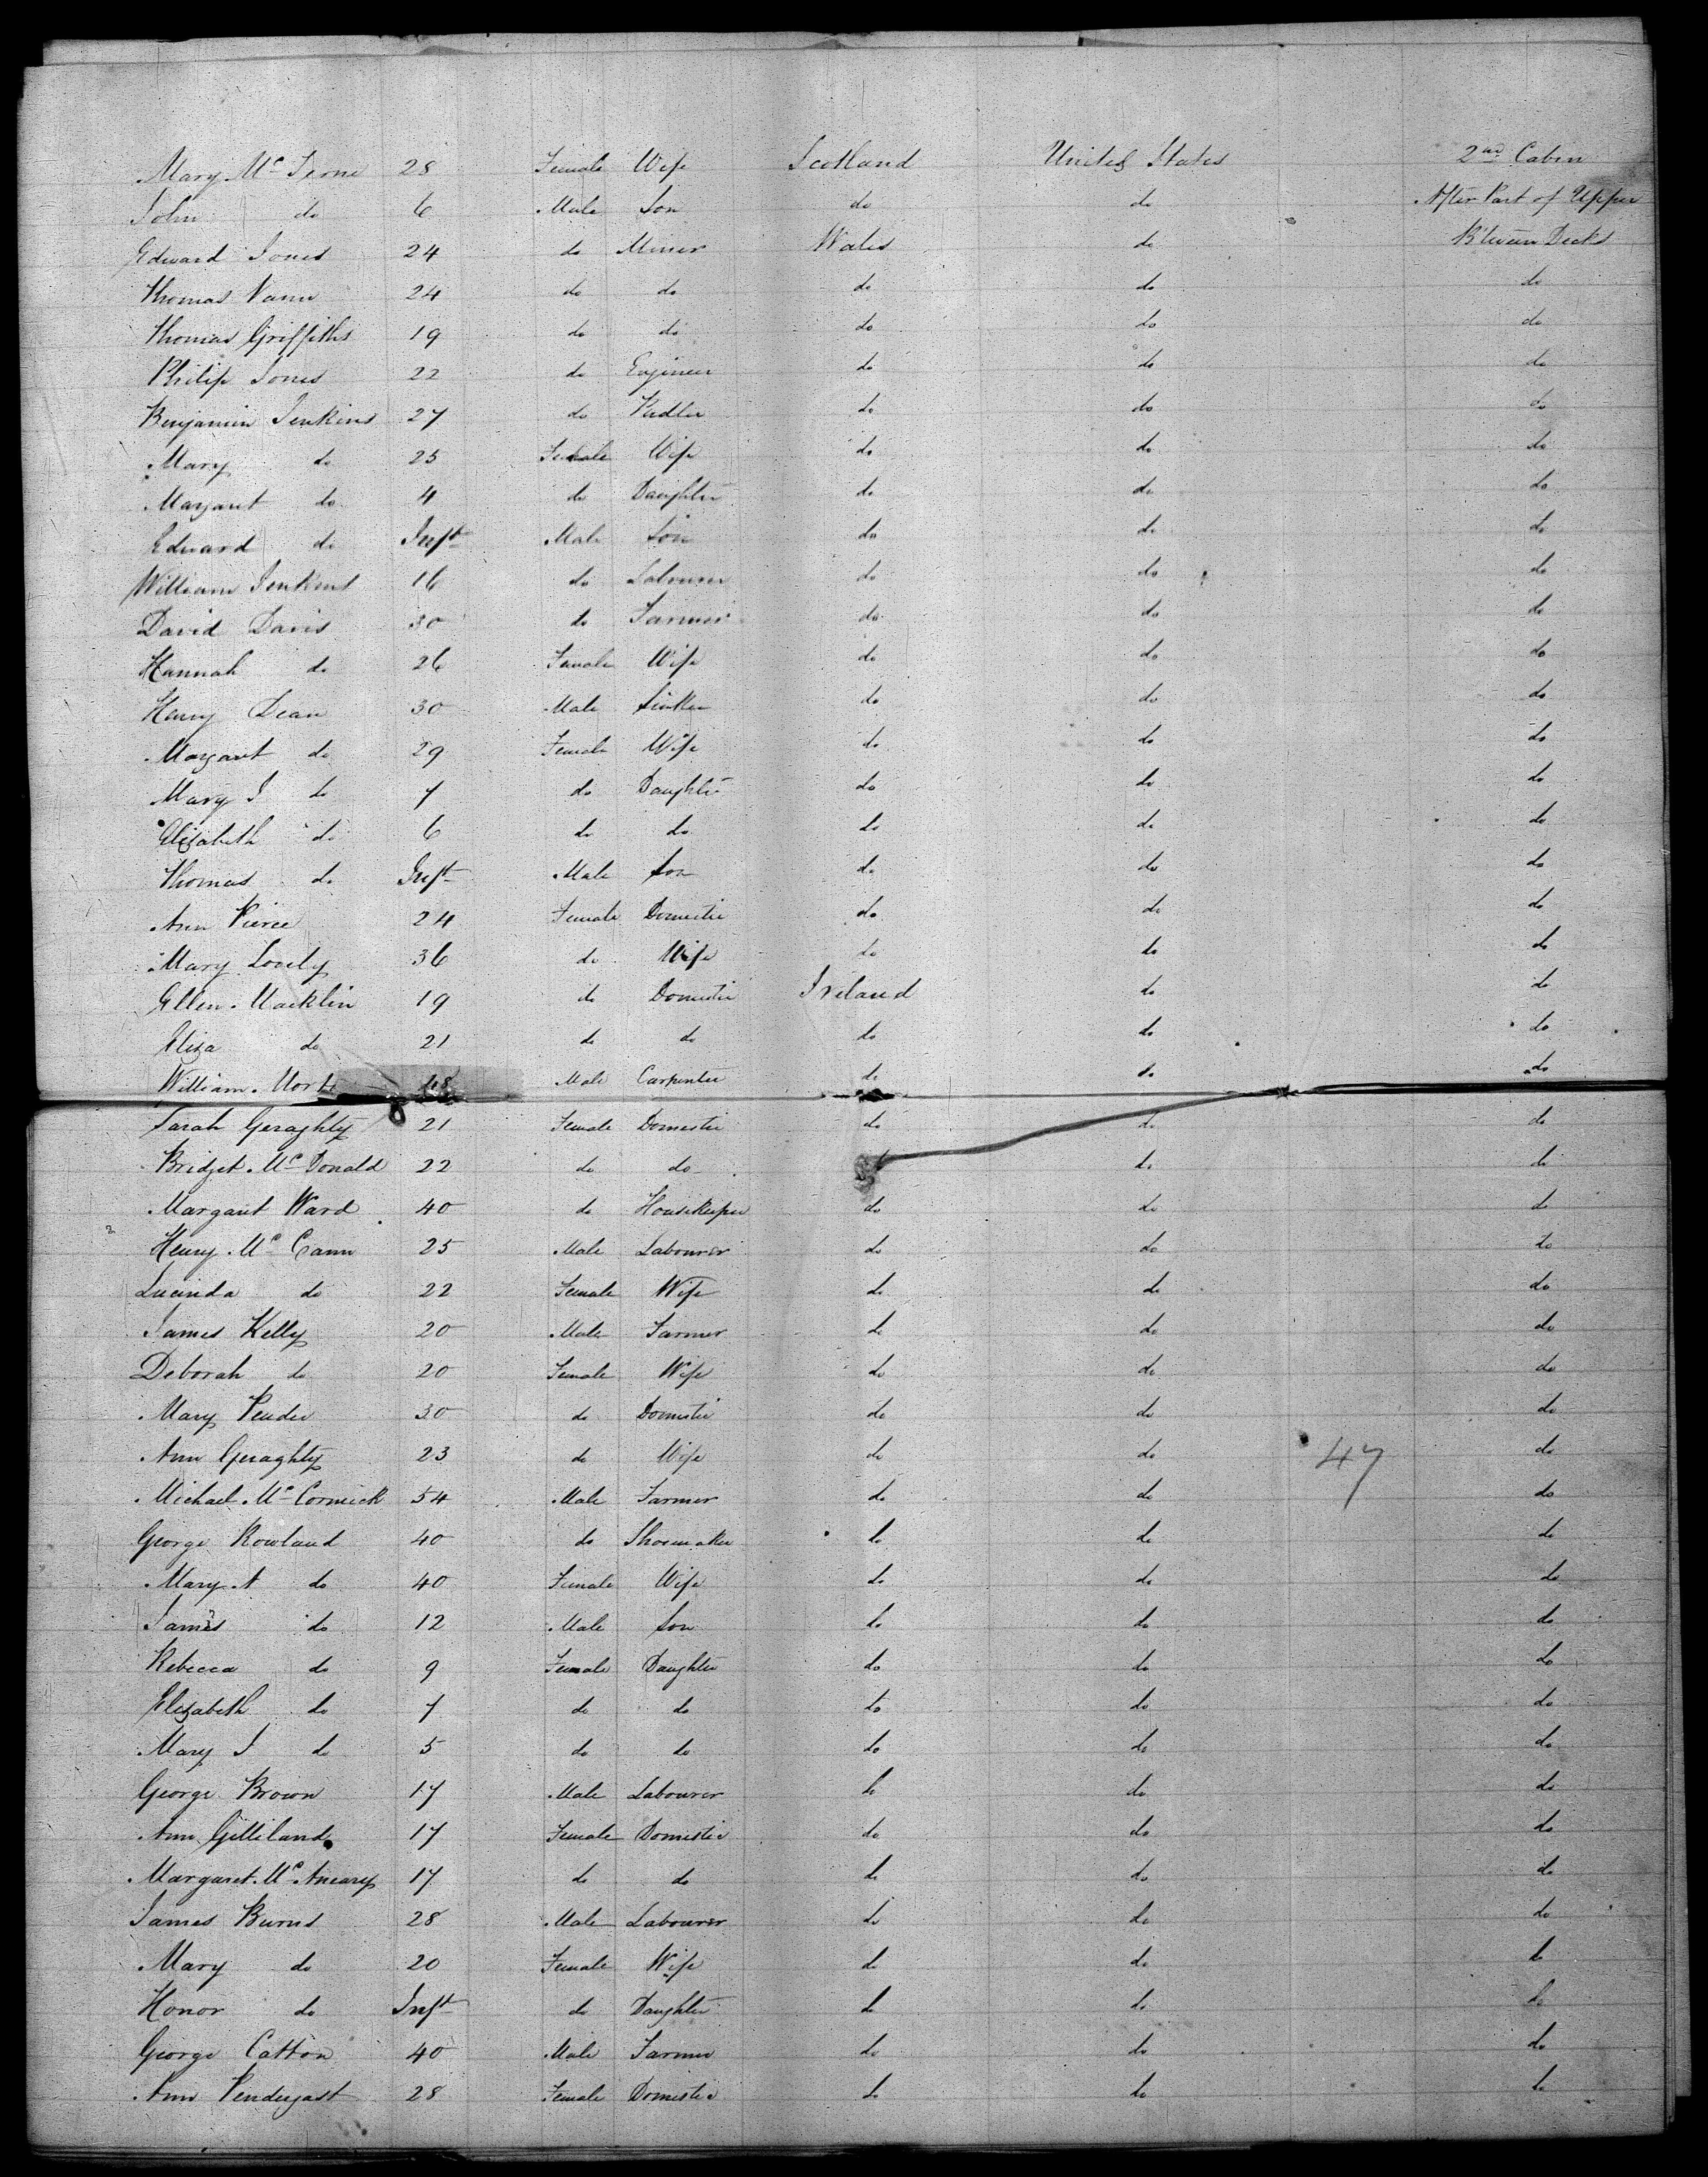 Mary Mc Ferne 28 Female Wife Scotland United States 2nd Cabin
John do 6 Male Son do do After Part of Upper
Edward Jones 24 do Miner Wales do B'tween Decks
Thomas Vann 24 do do do do do
Thomas Griffiths 19 do do do do do
Philip Jones 22 do Engineer do do do
Benjamin Jenkins 27 do Pudler do do do
Mary do 25 Female Wife do do do
Margaret do 4 do Daughter do do do
Edward do Inft Male Son do do do
William Jenkins 16 do Labourer do do do
David Davis 30 do Farmer do do do
Hannah do 26 Female Wife do do do
Henry Dean 30 Male Sinker do do do
Margaret do 29 Female Wife do do do
Mary J do 7 do Daughter do do do
Elizabeth do 6 do do do do do
Thomas do Inft Male Son do do do
Ann Pierce 24 Female Domestic do do do
Mary Lovely 36 do Wife do do do
Ellen Macklin 19 do Domestic Ireland do do
Eliza do 21 do do do do do
William 48 Male Carpenter do do do
Sarah Geraghty 21 Female Domestic do do do
Bridget Mc Donald 22 do do do do
Margaret Ward 40 do Housekeeper do do do
Henry Mc Cann 25 Male Labourer do do do
Lucinda do 22 Female Wife do do do
James Kelly 20 Male Farmer do do do
Deborah do 20 Female Wife do do do
Mary Pender 30 do Domestic do do do
Ann Geraghty 23 do Wife do do 47 do
Michael Mc Cormick 54 Male Farmer do do do
George Rowland 40 do Shoemaker do do do
Mary A do 40 Female Wife do do do
James do 12 Male Son do do do
Rebecca do 9 Female Daughter do do do
Elizabeth do 7 do do do do do
Mary J do 5 do do do do do
George Brown 17 Male Labourer do do do
Ann Gilliland 17 Female Domestic do do do
Margaret Mc Aneary 17 do do do do do
James Burns 28 Male Labourer do do do
Mary do 20 Female Wife do do do
Honor do Inft do Daughter do do do
George Catton 40 Male Farmer do do do
Ann Pendergast 28 Female Domestic do do do